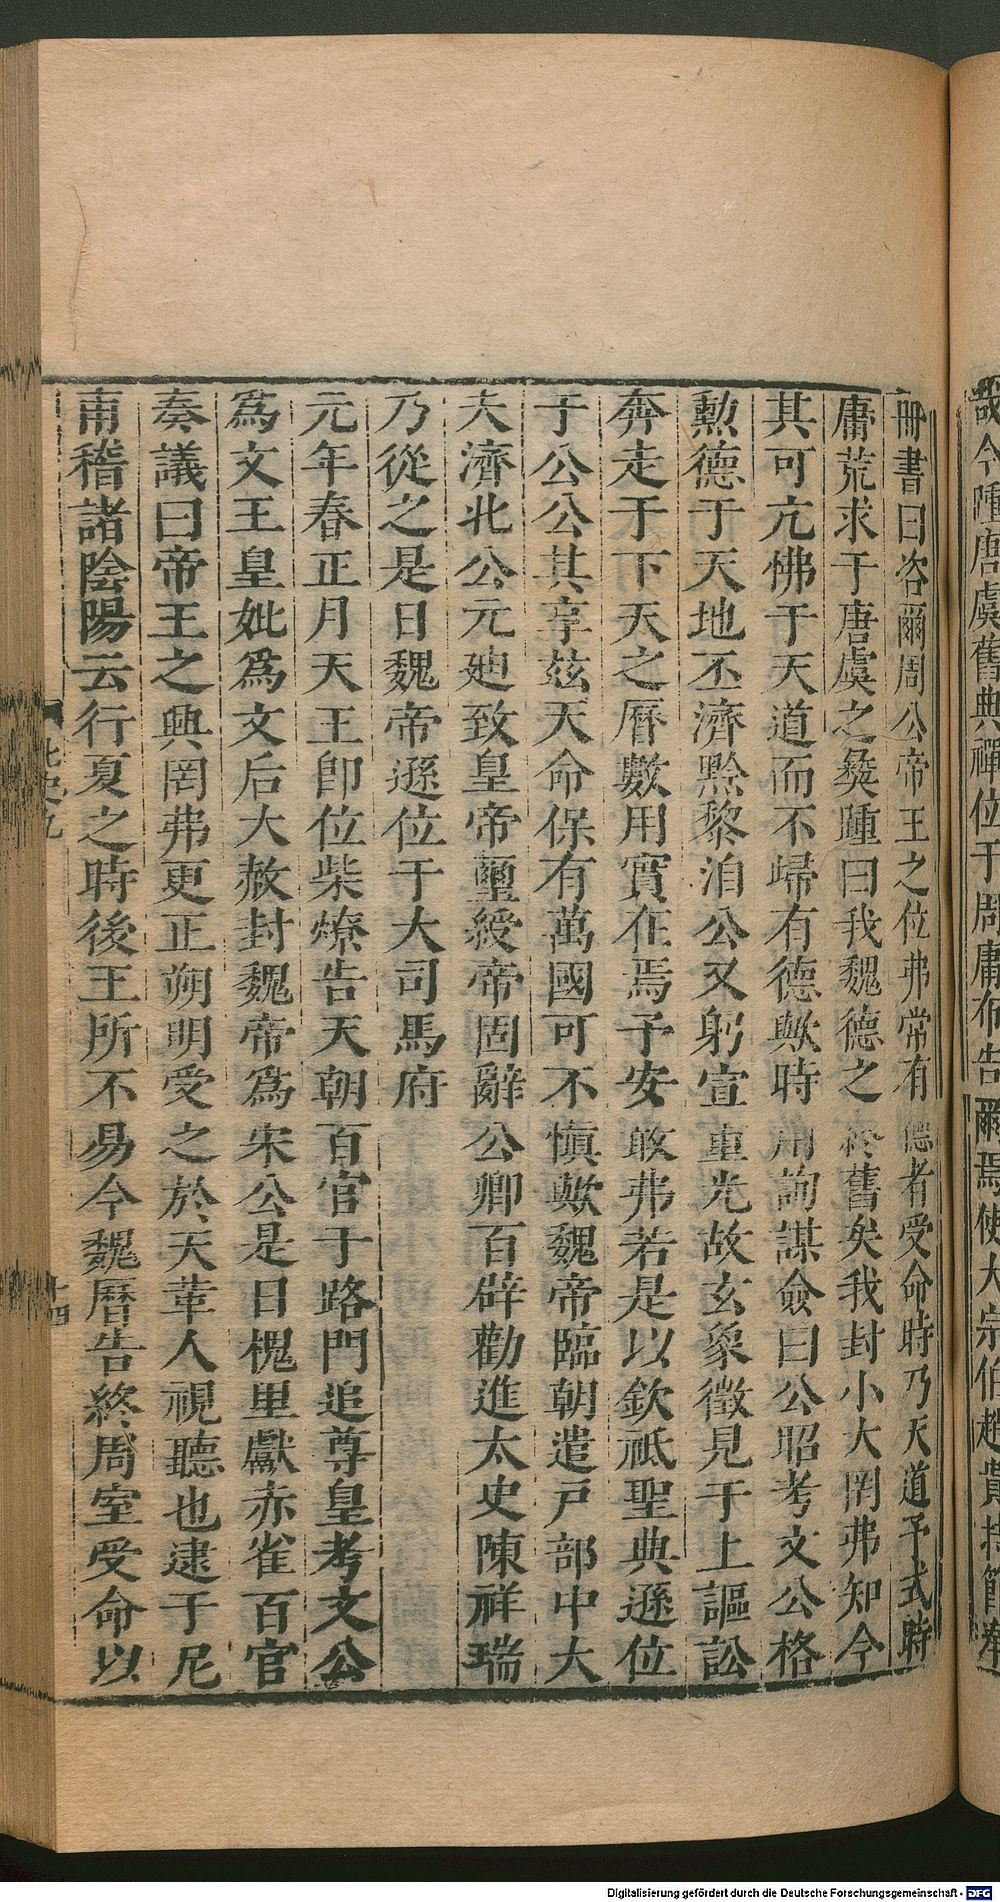 哉今踵唐虞舊典禪位于周庸布告爾焉使大宗伯趙貴持節奉
冊書曰咨爾周公帝王之位弗常有德者受命時乃天道予式時
庸荒求于唐虞之彝踵曰我魏德之終舊矣我封小大罔弗知今
其可亢怫于天道而不歸有德歟時用詢謀僉曰公昭考文公格
勲德于天地丕濟黔黎洎公又躬宣重光故玄象徵見于上謳訟
奔走于下天之曆數用實在焉予安敢弗若是以欽祗聖典遜位
于公公其享茲天命保有萬國可不慎歟魏帝臨朝遣戸部中大
夫濟北公元廸致皇帝璽綬帝固辭公卿百辟勸進太史陳祥瑞
乃從之是日魏帝遜位于大司馬府
元年春正月天王即位柴燎告天朝百官于路門追尊皇考文公
爲文王皇妣爲文后大赦封魏帝爲宋公是日槐里獻赤雀百官
奏議曰帝王之興罔弗更正朔明受之於天革人視聽也逮于尼
甫稽諸陰陽云行夏之時後王所不易今魏曆告終周室受命以
北史九
十四
Digitalisierung gefördert durch die Deutsche Forschungsgemeinschaft - DFG